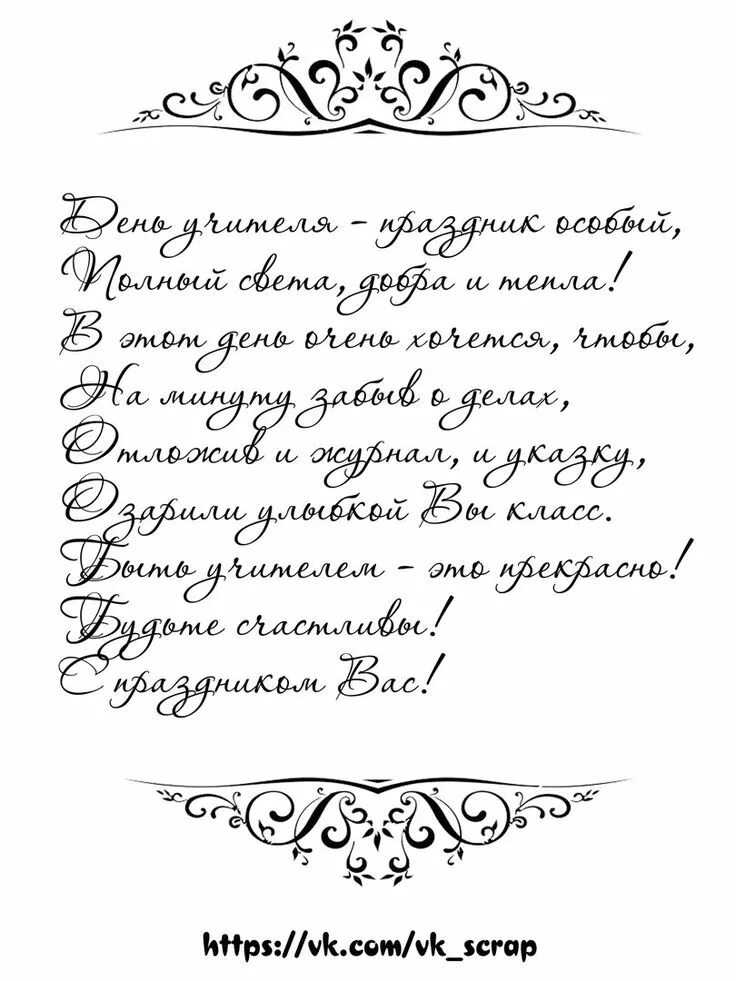 День учителя - праздник особый,
Полный света, добра и тепла!
В этот день очень хочется, чтобы,
На минуту забыв о делах,
Отложив и журнал, и указку,
Озарили улыбкой Вы класс.
Быть учителем - это прекрасно!
Будьте счастливы!
С праздником Вас!
https://vk.com/vk_scrap